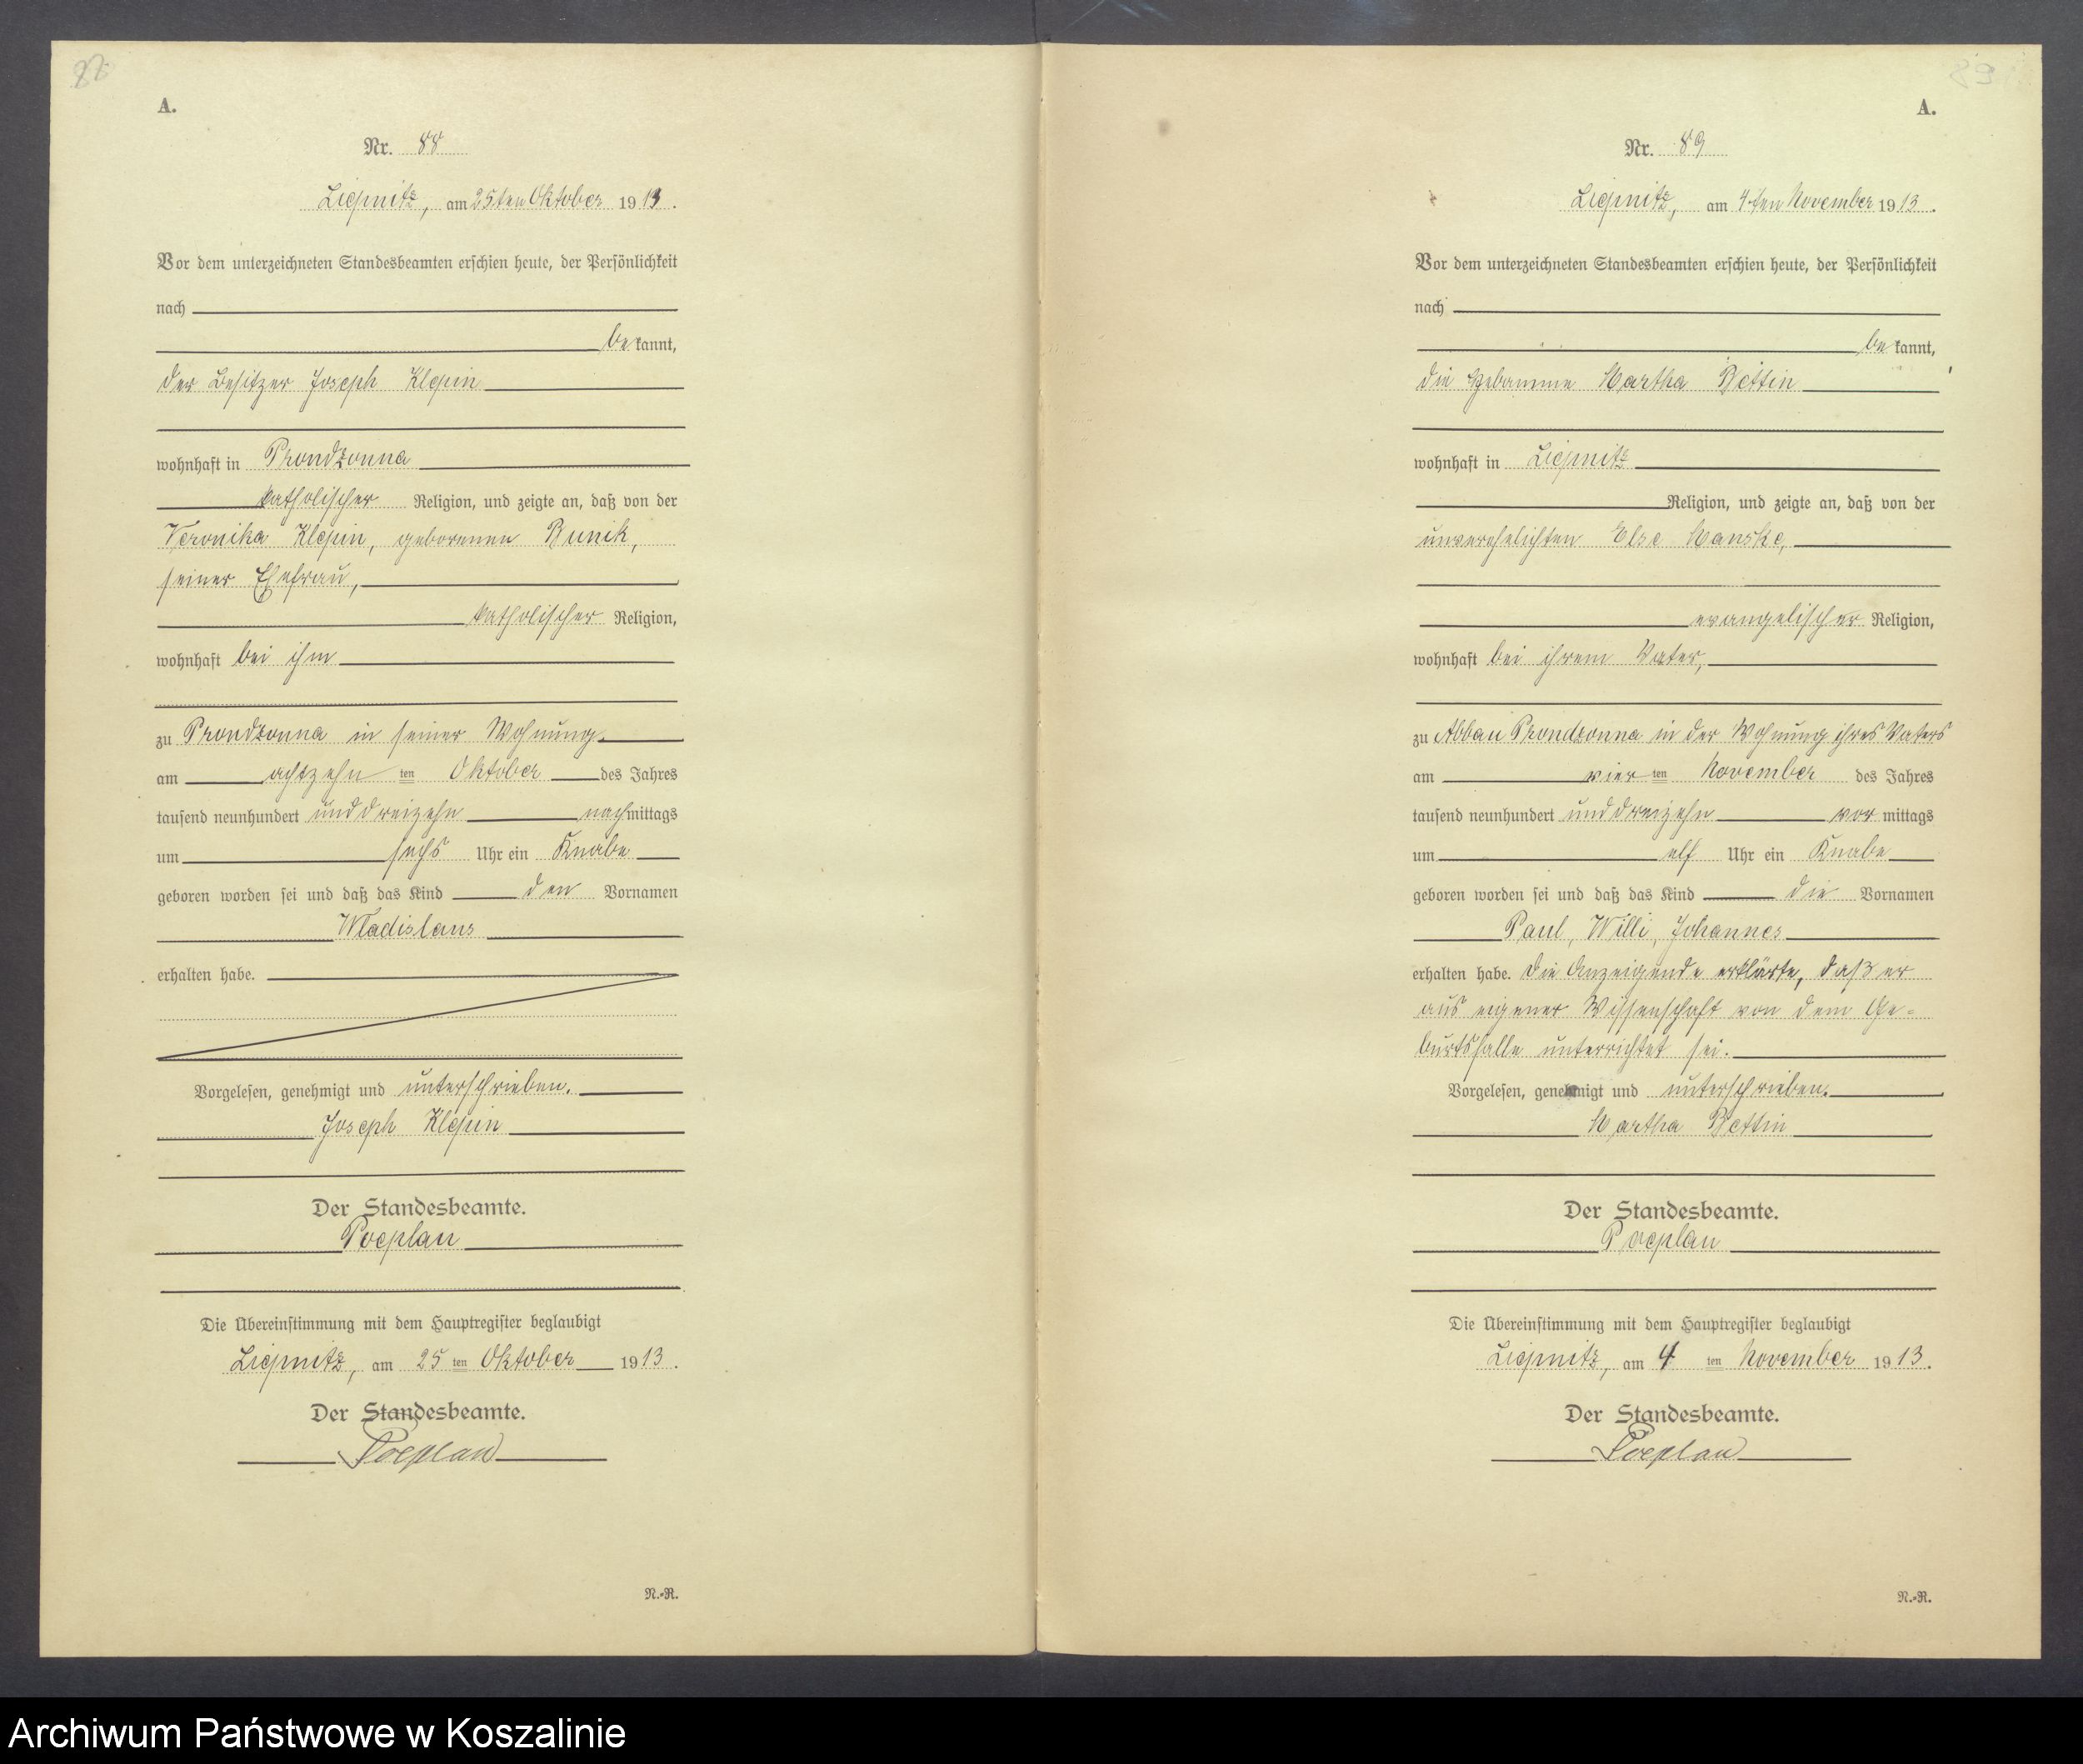 88
A.
Nr. 88
Liepnitz, am 25ten Oktober 1913.
Vor dem unterzeichneten Standesbeamten erschien heute, der Persönlichkeit
nach
bekannt,
der Besitzer Joseph Klepin
wohnhaft in Prondzonna
katholischer Religion, und zeigte an, daß von der
Veronika Klepin, geborenen Bunik,
seiner Ehefrau,
katholischer Religion,
wohnhaft bei ihm
zu Prondzonna in seiner Wohnung
am achtzehn ten Oktober des Jahres
tausend neunhundert unddreizehn nachmittags
um sechs Uhr ein Knabe
geboren worden sei und daß das Kind den Vornamen
Wladislaus
erhalten habe.
Vorgelesen, genehmigt und unterschrieben.
Joseph Klepin
Der Standesbeamte.
Poeplau
Die Übereinstimmung mit dem Hauptregister beglaubigt
Liepnitz, am 25 ten Oktober 1913.
Der Standesbeamte.
Poeplau
N.-R.
89
A.
Nr. 89
Liepnitz, am 4ten November 1913.
Vor dem unterzeichneten Standesbeamten erschien heute, der Persönlichkeit
nach
bekannt,
die Hebamme Martha Bettin
wohnhaft in Liepnitz
Religion, und zeigte an, daß von der
unverehelichten Else Manske,
evangelischer Religion,
wohnhaft bei ihrem Vater,
zu Abbau Prondzonna in der Wohnung ihres Vaters
am vier ten November des Jahres
tausend neunhundert unddreizehn vormittags
um elf Uhr ein Knabe
geboren worden sei und daß das Kind die Vornamen
Paul, Willi, Johannes
erhalten habe. Die Anzeigende erklärte, daß er
aus eigener Wissenschaft von dem Ge-
burtsfalle unterrichtet sei.
Vorgelesen, genehmigt und unterschrieben.
Martha Bettin
Der Standesbeamte.
Poeplau
Die Übereinstimmung mit dem Hauptregister beglaubigt
Liepnitz, am 4 ten November 1913.
Der Standesbeamte.
Poeplau
N.-R.
Archiwum Państwowe w Koszalinie